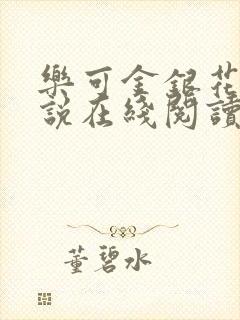 樂可金銀花
說在綫閱讀
董碧水